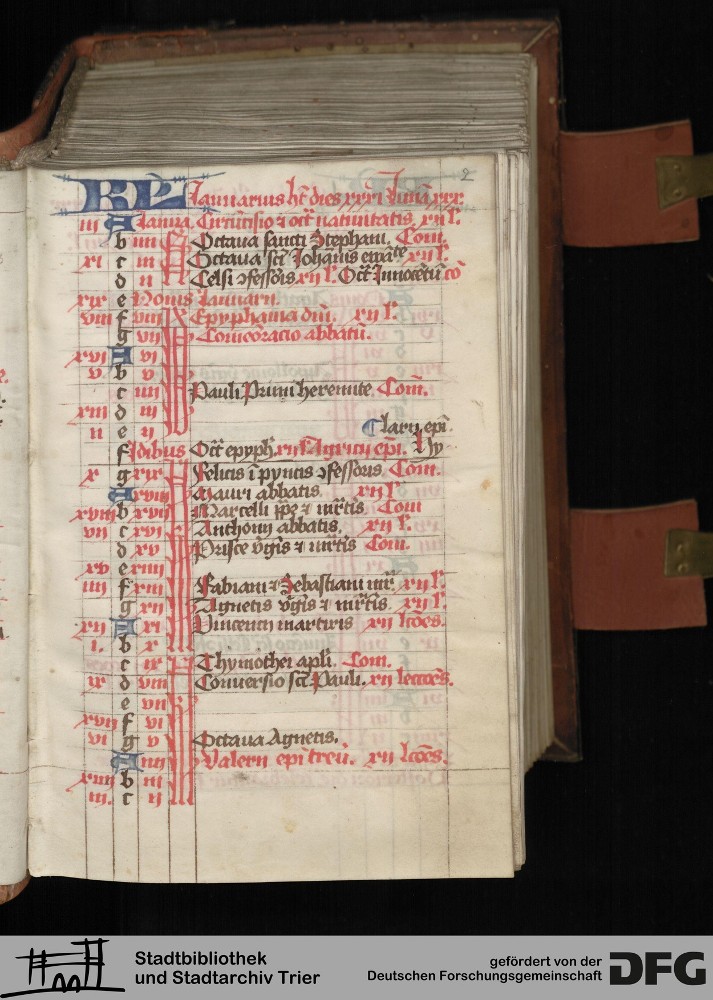 2
KL Januarius ht dies xxxi Luna xxx.
iii A Janua. Circucisio ⁊ oct natiuitatis xii l.
b iiii Octaua sancti Stephani. Com.
xi c iii Octaua sct Johanis xii l.
d ii Celsi ↄfessoris xii l. Oct Innocetu co
xix e Nonis Januarii.
viii f Epyphania dni. xii l.
g vii Comeoracio abbatu.
xvi A vi
v b v
c iiii Pauli Primi heremite. Com.
xiii d iii
ii e ii Clarii epi.
f Idibus Oct epyph. xii l. Agricii epi. Hy
x g xix Felicis i pyncis ↄfessoris Com.
A xviii Mauri abbatis. xii l.
xviii b xvii Marcelli pp ⁊ mrtis. Com
vii c xvi Anthonii abbatis. xii l.
d xv Prisce vgis ⁊ mrtis Com.
xv e xiiii
iiii f xiii Fabiani ⁊ Sebastiani mr. xii l.
g xii Agnetis vgis ⁊ mrtis. xii l.
xii A xi Vincentii martiris xii lcoes.
i. b x
c ix Thymothei apli. Com.
ix d viii Conuersio sct Pauli. xii leccoes.
e vii
xvii f vi
vi g v Octaua Agnetis.
A iiii Valerii epi treu. xii lcoes.
xiiii b iii
iii. c ii
Stadtbibliothek
und Stadtarchiv Trier
gefördert von der
Deutschen Forschungsgemeinschaft
DFG